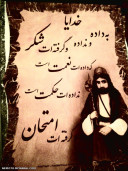 خدایا
به داده و نداده و گرفته ات شکر
که داده ات نعمت است
نداده ات حکمت است
و گرفته ات امتحان